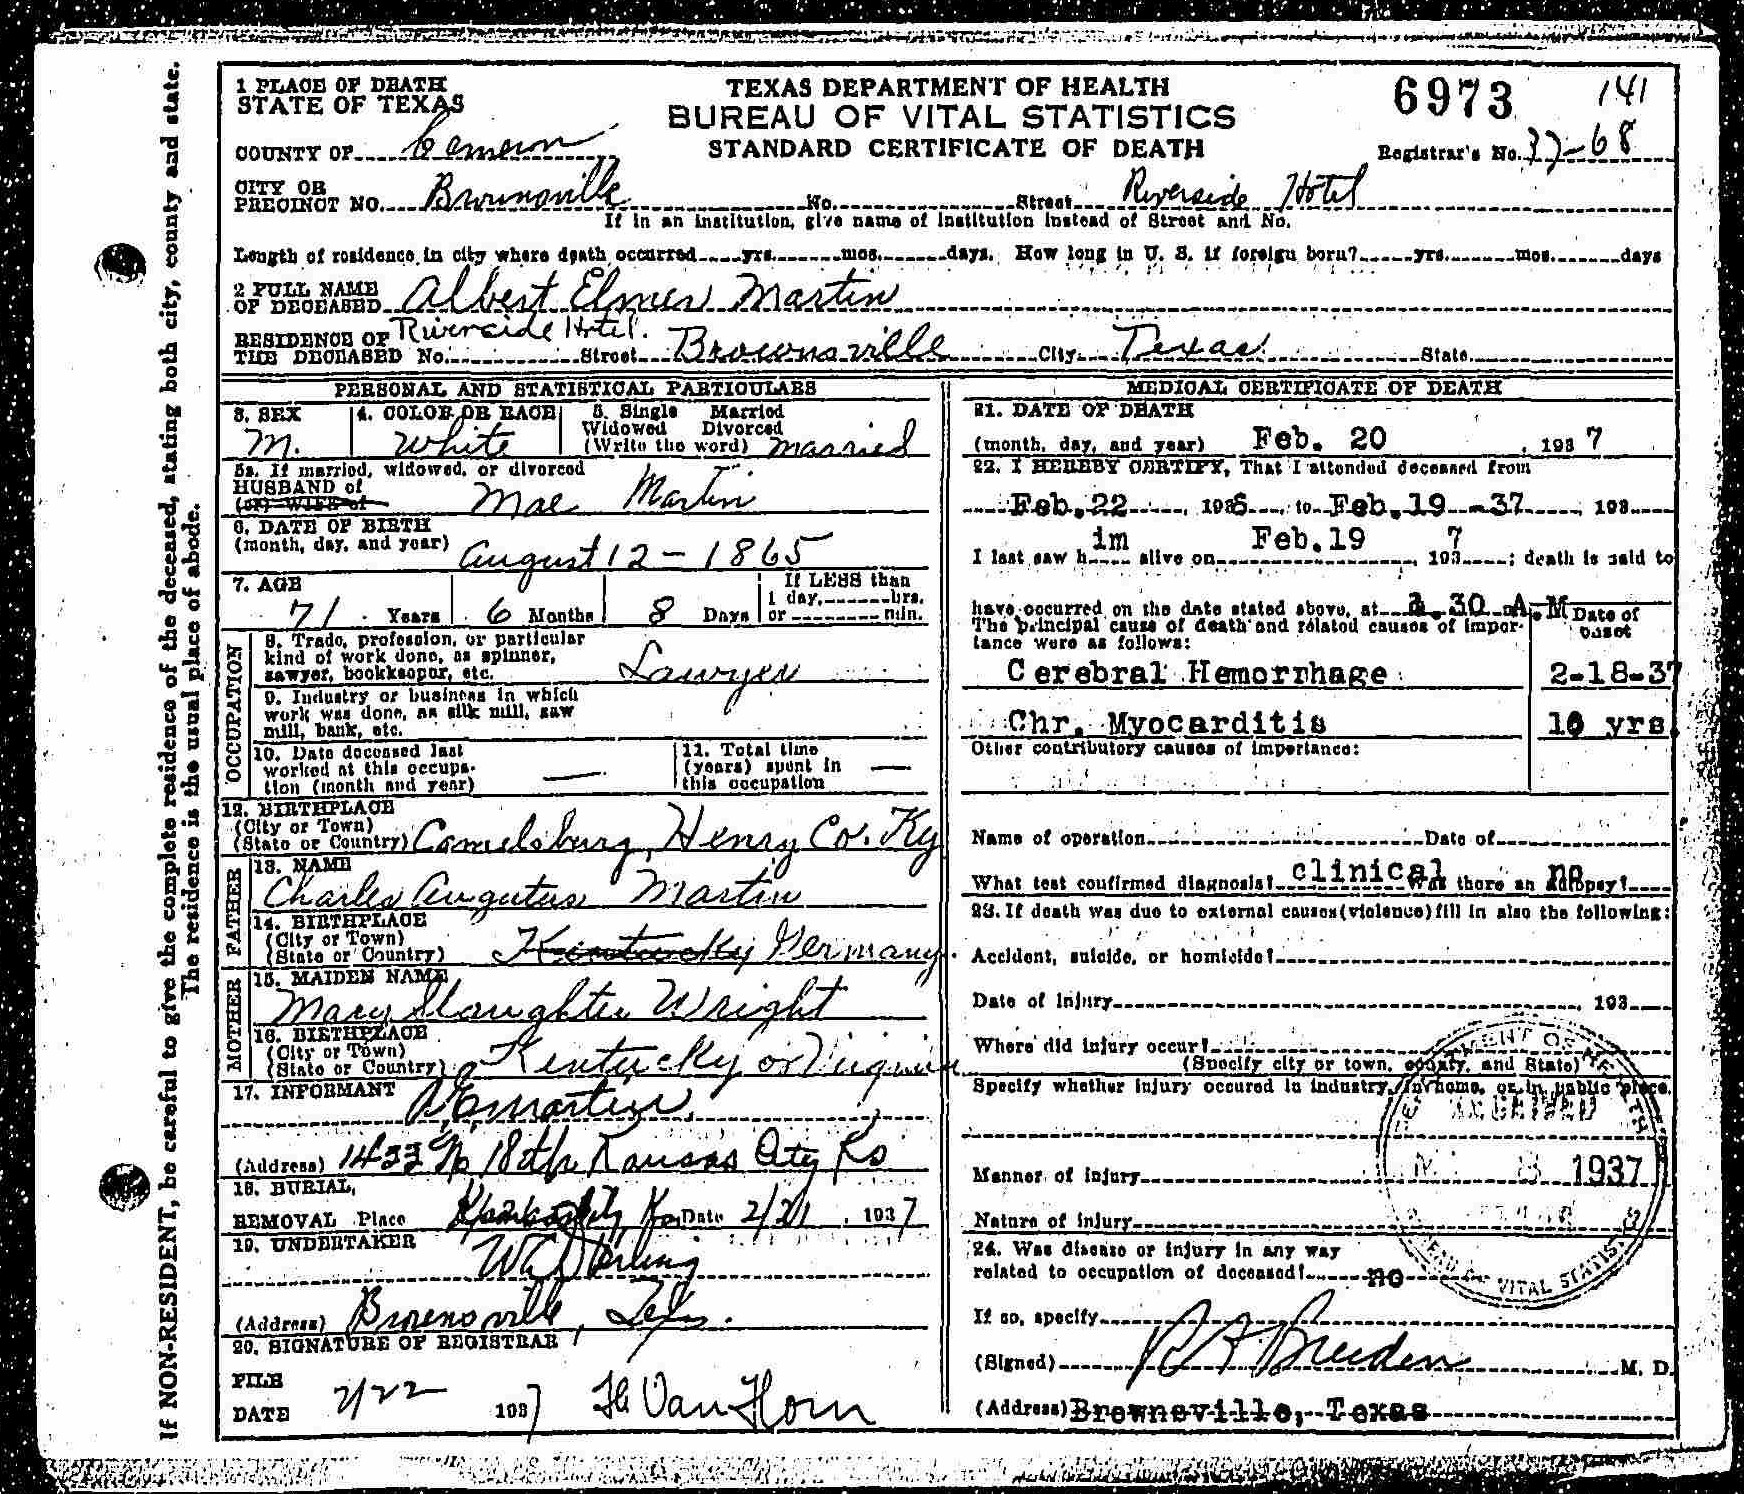 If NON-RESIDENT, be careful to give the complete residence of the deceased, stating both city, county and state.
The residence is the usual place of abode.
1 PLACE OF DEATH
STATE OF TEXAS
TEXAS DEPARTMENT OF HEALTH
BUREAU OF VITAL STATISTICS
STANDARD CERTIFICATE OF DEATH
6973 141
COUNTY OF Cameron
Registrar's No. 37-68
CITY OR
PRECINCT NO. Brownsville No. Street Riverside Hotel
If in an institution, give name of institution instead of Street and No.
Length of residence in city where death occurred yrs. mos. days. How long in U. S. if foreign born? yrs. mos. days
2 FULL NAME
OF DECEASED Albert Elmer Martin
RESIDENCE OF
THE DECEASED No. Riverside Hotel. Street Brownsville City Texas State
PERSONAL AND STATISTICAL PARTICULARS
3. SEX M.
4. COLOR OR RACE White
5. Single Married
Widowed Divorced
(Write the word) married
5a. If married, widowed, or divorced
HUSBAND of
(or) WIFE of Mae Martin
6. DATE OF BIRTH
(month, day, and year) August 12 - 1865
7. AGE
71 Years 6 Months 8 Days
If LESS than
1 day, hrs.
or min.
OCCUPATION
8. Trade, profession, or particular
kind of work done, as spinner,
sawyer, bookkeeper, etc. Lawyer
9. Industry or business in which
work was done, as silk mill, saw
mill, bank, etc.
10. Date deceased last
worked at this occupa-
tion (month and year) —
11. Total time
(years) spent in
this occupation —
12. BIRTHPLACE
(City or Town)
(State or Country) Henry Co. Ky
FATHER
13. NAME
Charles Augutus Martin
14. BIRTHPLACE
(City or Town)
(State or Country) Kentucky Germany
MOTHER
15. MAIDEN NAME
Mary Slaughter Wright
16. BIRTHPLACE
(City or Town)
(State or Country) Kentucky or Virginia
17. INFORMANT Martin
(Address) 1433 No 18th Kansas City Ks
18. BURIAL,
REMOVAL Place Kansas City, Date 2/21, 1937
19. UNDERTAKER
(Address) Brownsville, Tex.
20. SIGNATURE OF REGISTRAR
FILE
DATE 2/22 1937 Van Horn
MEDICAL CERTIFICATE OF DEATH
21. DATE OF DEATH
(month, day, and year) Feb. 20, 1937
22. I HEREBY CERTIFY, That I attended deceased from
Feb. 22, 1936, to Feb. 19 -37, 193
I last saw him alive on Feb. 19, 1937; death is said to
have occurred on the date stated above, at 30 A.M
The principal cause of death and related causes of impor-
tance were as follows:
Date of
Onset
Cerebral Hemorrhage 2-18-37
Chr. Myocarditis 10 yrs.
Other contributory causes of importance:
Name of operation Date of
What test confirmed diagnosis? clinical Was there an autopsy? no
23. If death was due to external causes (violence) fill in also the following:
Accident, suicide, or homicide?
Date of injury, 193
Where did injury occur?
(Specify city or town, county, and State)
Specify whether injury occured in industry, in home, or in public place.
Manner of injury
Nature of injury
RECEIVED
1937
VITAL STATISTICS
24. Was disease or injury in any way
related to occupation of deceased? no
If so, specify
(Signed) Breeden M. D.
(Address) Brownsville, Texas